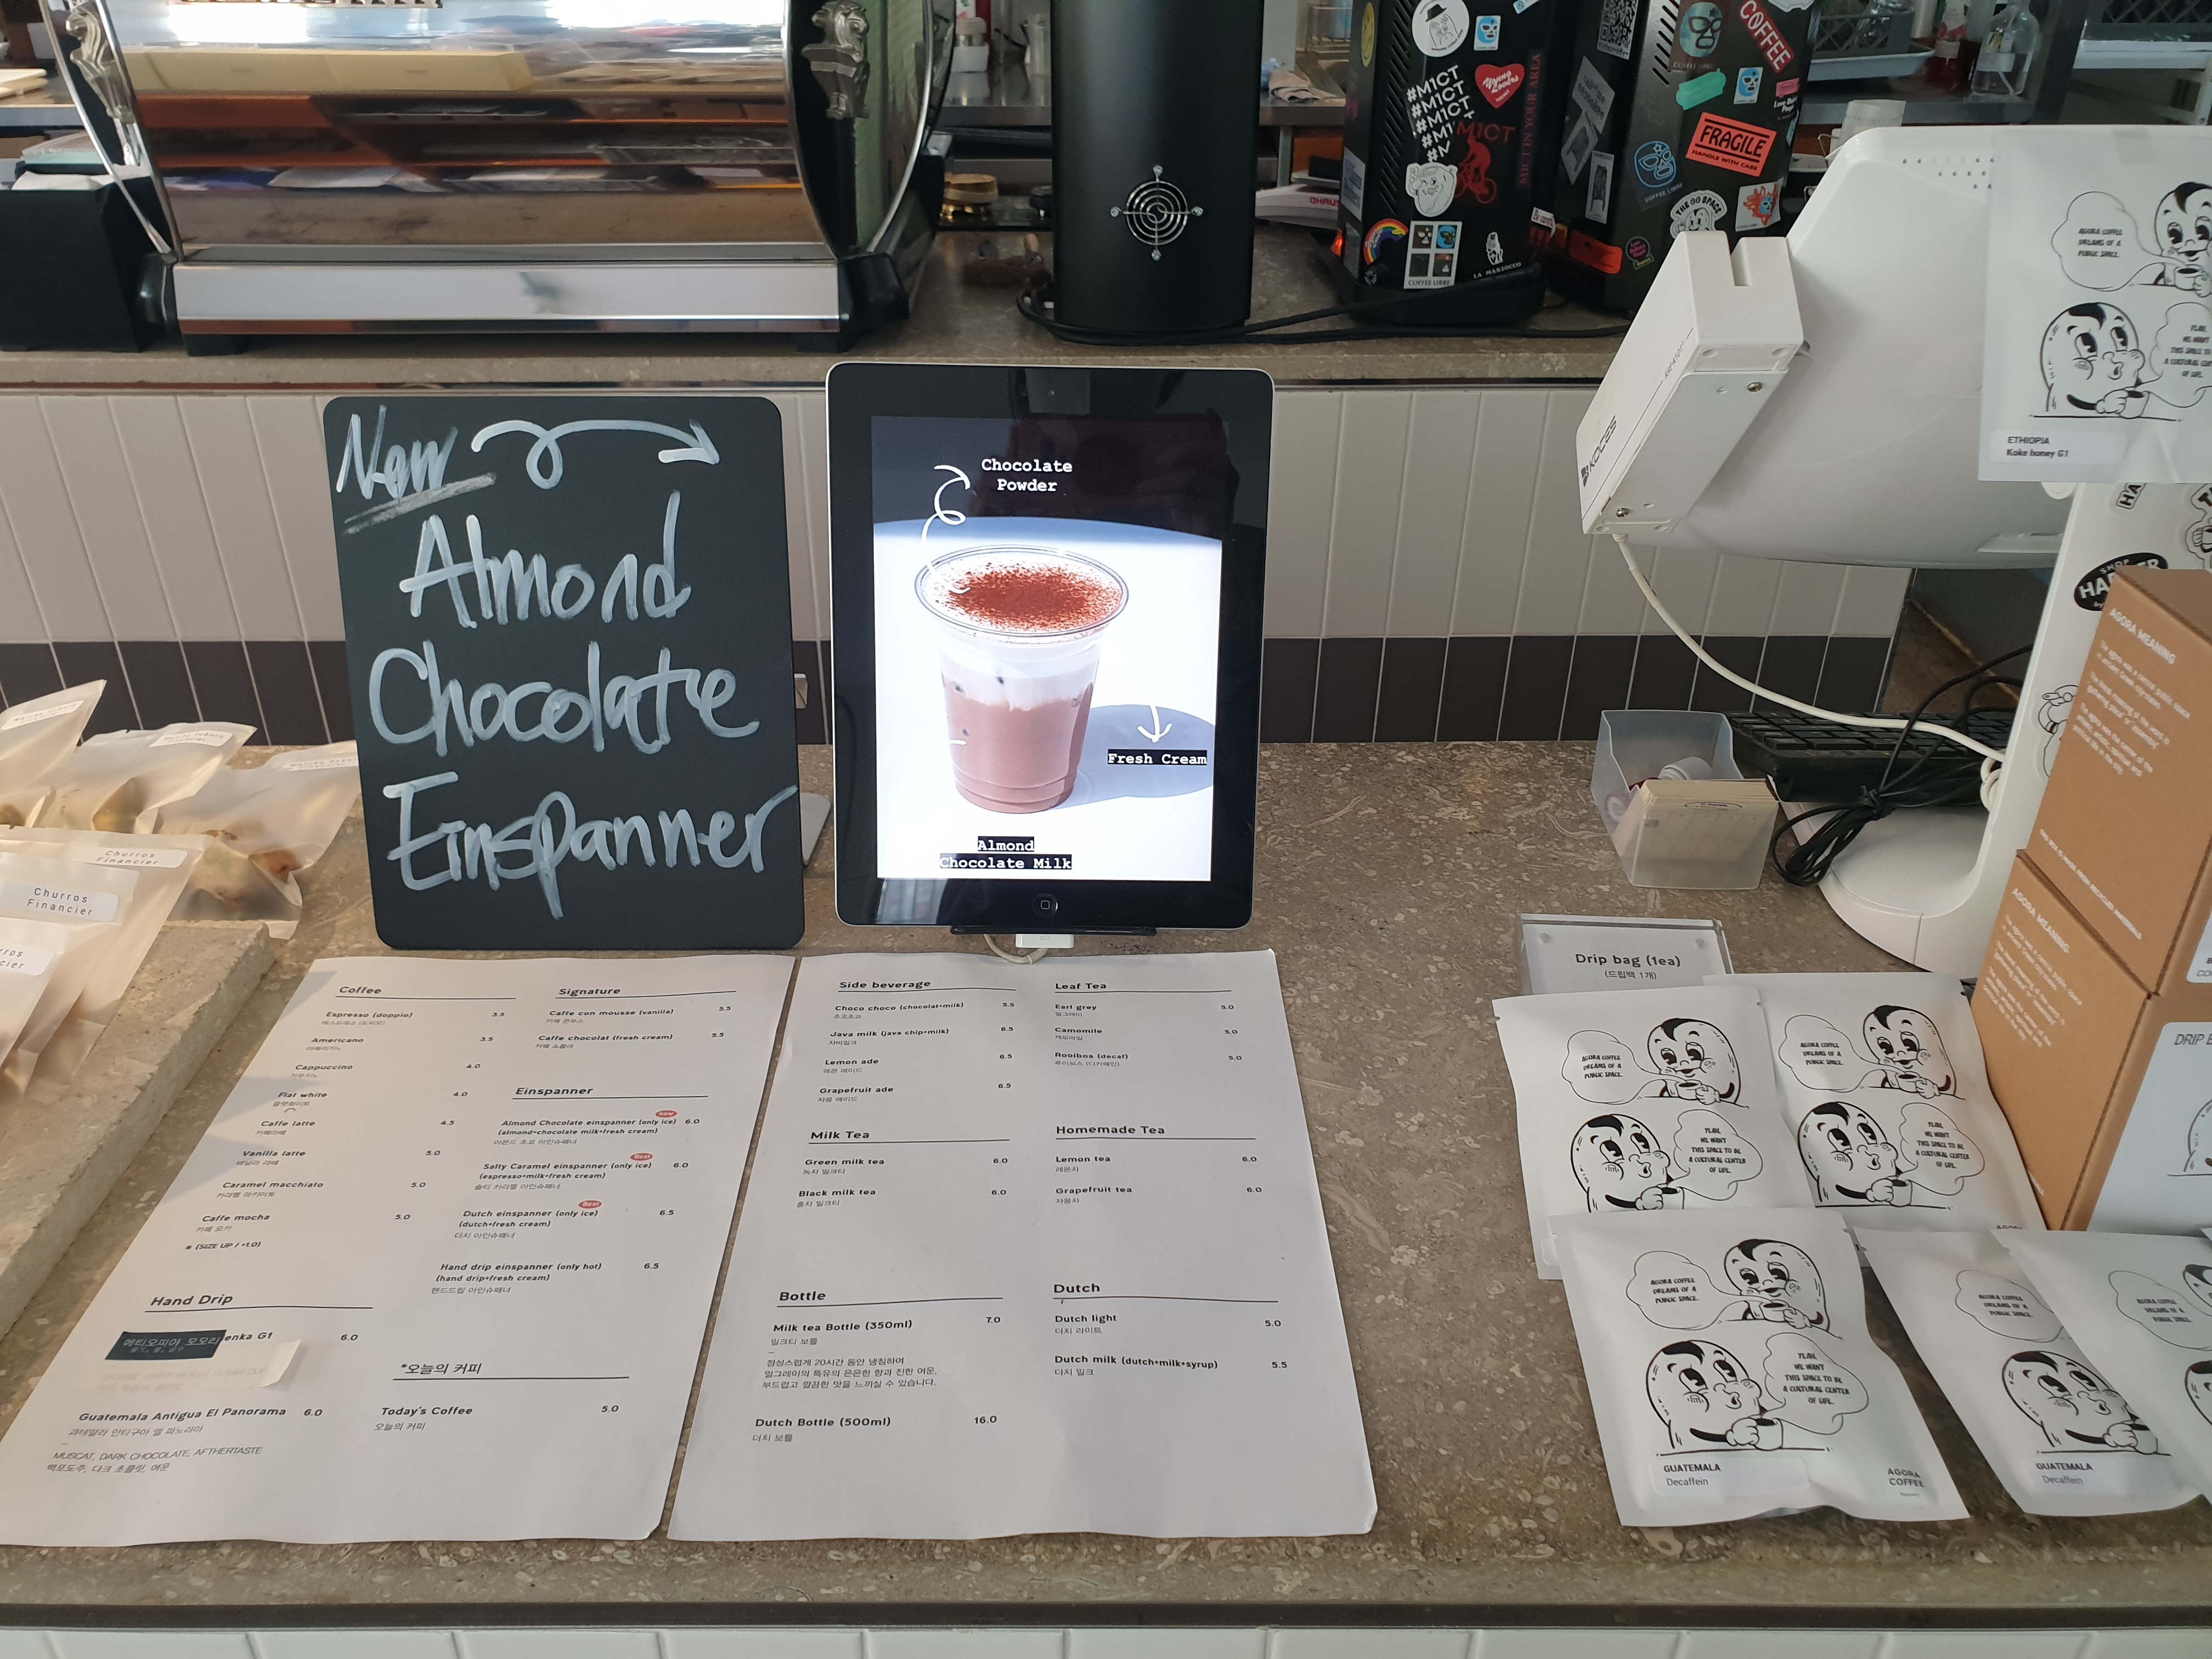 New
Almond
Chocolate
Einspanner
Chocolate
Powder
Fresh Cream
Almond
Chocolate Milk
Coffee
Espresso (doppio) 3.5
에스프레소 (도피오)
Americano 3.5
아메리카노
Cappuccino 4.0
카푸치노
Flat white 4.0
플랫화이트
Caffe latte 4.5
카페라떼
Vanilla latte 5.0
바닐라 라떼
Caramel macchiato 5.0
카라멜 마키아토
Caffe mocha 5.0
카페 모카
(SIZE UP / +1.0)
Hand Drip
에티오피아 모모라
enka G1 6.0
Guatemala Antigua El Panorama 6.0
과테말라 안티구아 엘 파노라마
MUSCAT, DARK CHOCOLATE, AFTHERTASTE
백포도주, 다크 초콜릿, 여운
Signature
Caffe con mousse (vanilla) 5.5
카페 콘무스
Caffe chocolat (fresh cream) 5.5
카페 쇼콜라
Einspanner
new
Almond Chocolate einspanner (only ice) 6.0
(almond+chocolate milk+fresh cream)
아몬드 초코 아인슈패너
Best
Salty Caramel einspanner (only ice) 6.0
(espresso+milk+fresh cream)
솔티 카라멜 아인슈패너
Best
Dutch einspanner (only ice) 6.5
(dutch+fresh cream)
더치 아인슈패너
Hand drip einspanner (only hot) 6.5
(hand drip+fresh cream)
핸드드립 아인슈패너
*오늘의 커피
Today's Coffee 5.0
오늘의 커피
Side beverage
Choco choco (chocolat+milk) 5.5
초코초코
Java milk (java chip+milk) 6.5
자바밀크
Lemon ade 6.5
레몬 에이드
Grapefruit ade 6.5
자몽 에이드
Milk Tea
Green milk tea 6.0
녹차 밀크티
Black milk tea 6.0
홍차 밀크티
Bottle
Milk tea Bottle (350ml) 7.0
밀크티 보틀
정성스럽게 20시간 동안 냉침하여
얼그레이의 특유의 은은한 향과 진한 여운,
부드럽고 깔끔한 맛을 느끼실 수 있습니다.
Dutch Bottle (500ml) 16.0
더치 보틀
Leaf Tea
Earl grey 5.0
얼그레이
Camomile 5.0
캐모마일
Rooibos (decaf) 5.0
루이보스 (디카페인)
Homemade Tea
Lemon tea 6.0
레몬차
Grapefruit tea 6.0
자몽차
Dutch
Dutch light 5.0
더치 라이트
Dutch milk (dutch+milk+syrup) 5.5
더치 밀크
Churros
Financier
Churros
Financier
Drip bag (1ea)
(드립백 1개)
AGORA COFFEE
DREAMS OF A
PUBLIC SPACE.
YEAH,
WE WANT
THIS SPACE TO BE
A CULTURAL CENTER
OF LIFE.
AGORA COFFEE
DREAMS OF A
PUBLIC SPACE.
YEAH,
WE WANT
THIS SPACE TO BE
A CULTURAL CENTER
OF LIFE.
AGORA COFFEE
DREAMS OF A
PUBLIC SPACE.
YEAH,
WE WANT
THIS SPACE TO BE
A CULTURAL CENTER
OF LIFE.
GUATEMALA
Decaffein
AGORA
COFFEE
AGORA COFFEE
DREAMS OF A
PUBLIC SPACE.
GUATEMALA
Decaffein
AGORA COFFEE
DREAMS OF A
PUBLIC SPACE.
AGORA COFFEE
DREAMS OF A
PUBLIC SPACE.
ETHIOPIA
Koke honey G1
AGORA MEANING
AGORA MEANING
DRIP
KOCES
#M1CT
#M1CT
#M1CT
M1CT
M1CT IN YOUR AREA
Young
Lovers
COFFEE LIBRE
LA MARZOCCO
COFFEE
FRAGILE
HANDLE WITH CARE
COFFEE LIBRE
THE GG SPACE
OHAUS